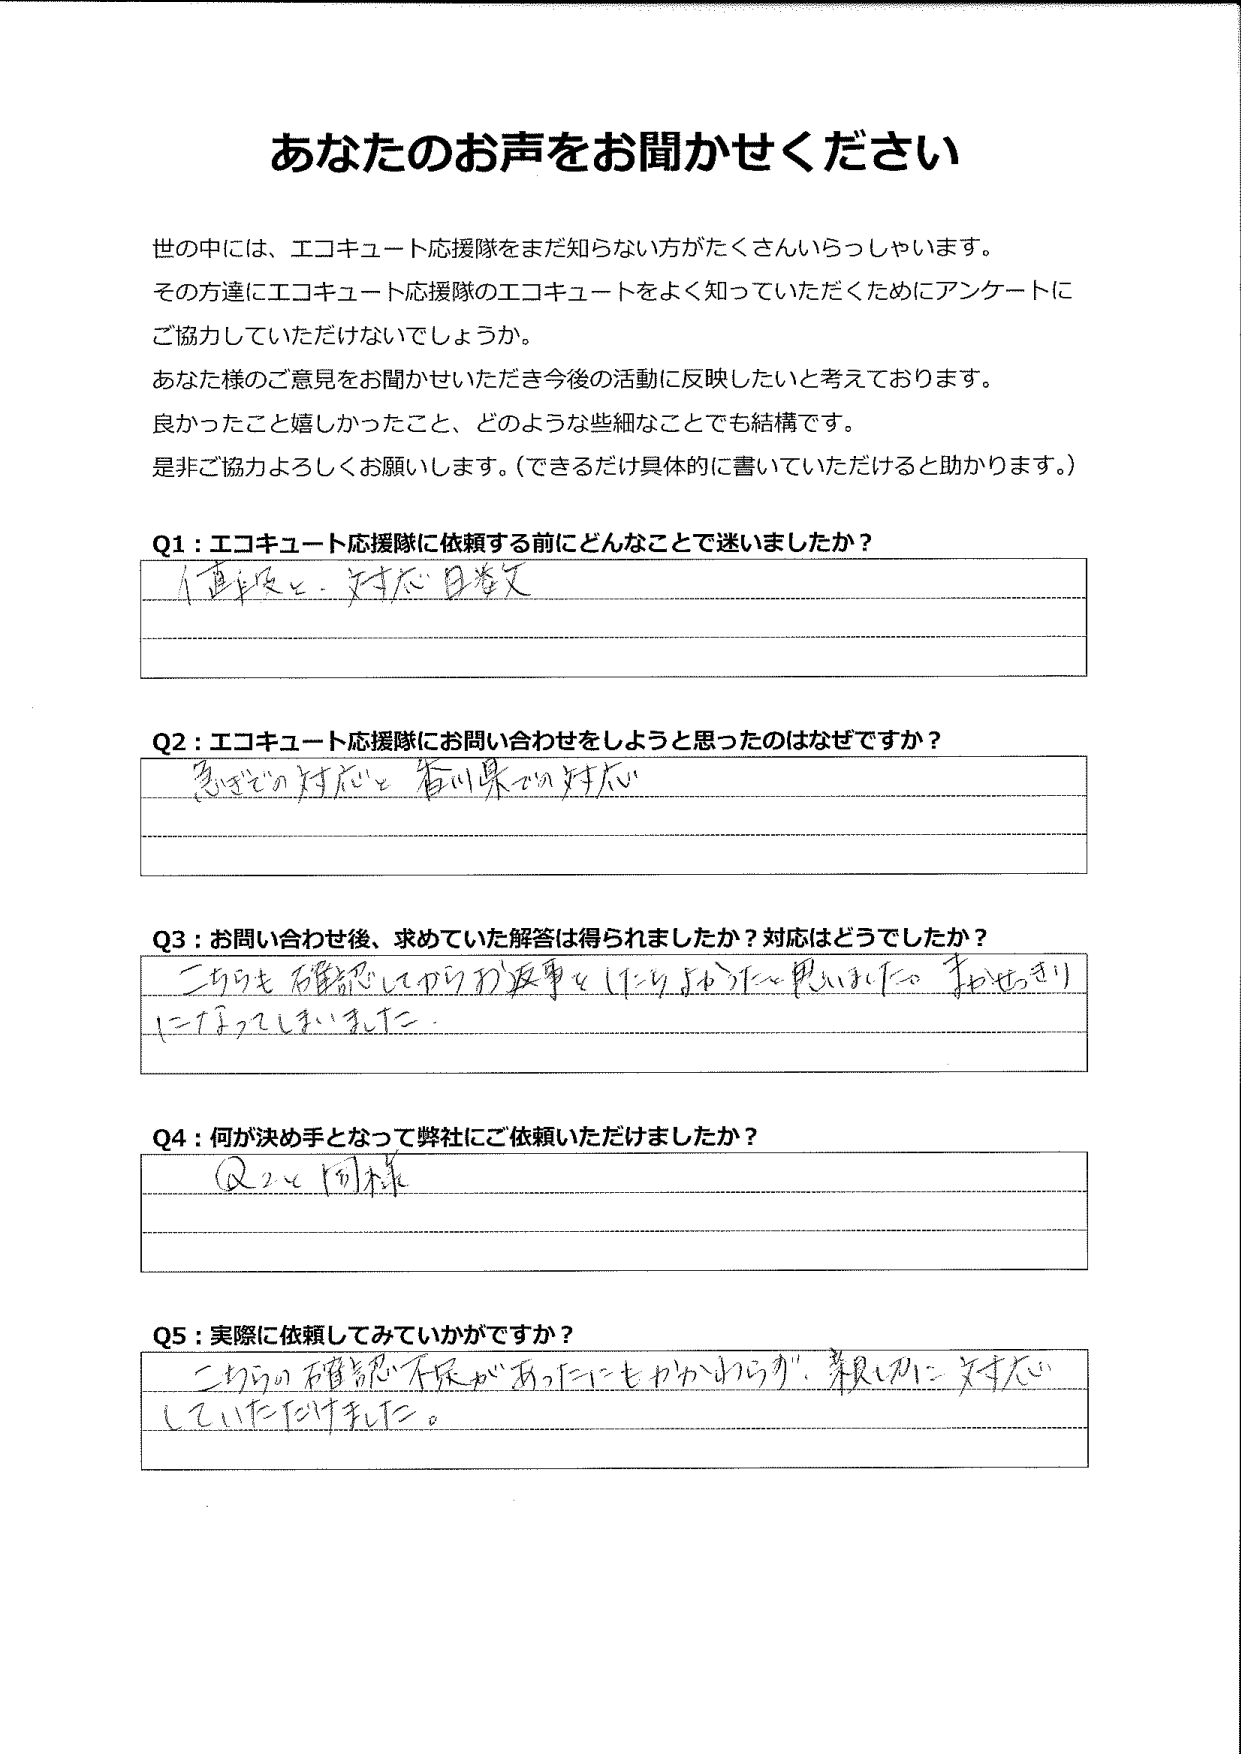 あなたのお声をお聞かせください
世の中には、エコキュート応援隊をまだ知らない方がたくさんいらっしゃいます。
その方達にエコキュート応援隊のエコキュートをよく知っていただくためにアンケートに
ご協力していただけないでしょうか。
あなた様のご意見をお聞かせいただき今後の活動に反映したいと考えております。
良かったこと嬉しかったこと、どのような些細なことでも結構です。
是非ご協力よろしくお願いします。（できるだけ具体的に書いていただけると助かります。）
Q1：エコキュート応援隊に依頼する前にどんなことで迷いましたか？
値段と、対応日数
Q2：エコキュート応援隊にお問い合わせをしようと思ったのはなぜですか？
急ぎでの対応と 香川県での対応
Q3：お問い合わせ後、求めていた解答は得られましたか？対応はどうでしたか？
こちらも確認してからお返事をしたらよかったと思いました。まかせっきり
になってしまいました.
Q4：何が決め手となって弊社にご依頼いただけましたか？
Q2と同様
Q5：実際に依頼してみていかがですか？
こちらの確認不足があったにもかかわらず、親切に対応
していただけました。